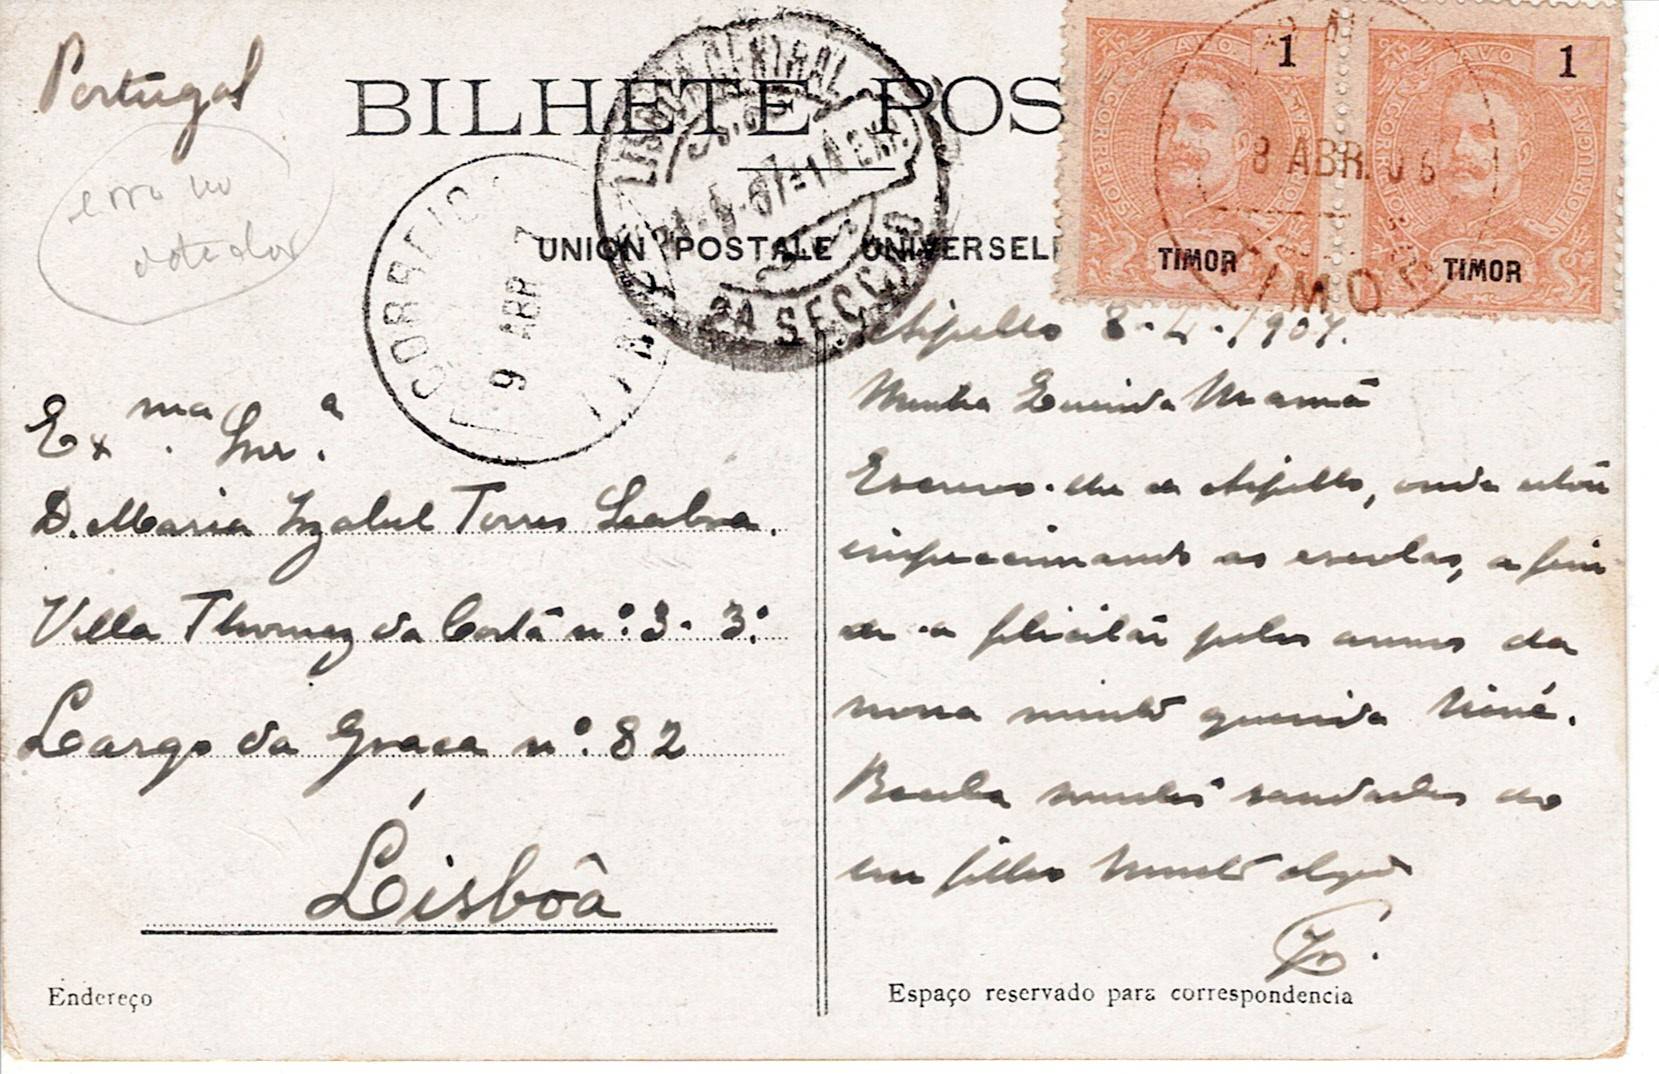 Portugal
BILHETE POS
UNION POSTALE UNIVERSELL
erro no
datador
CORREIO
9 ABR 7
LISBOA CENTRAL
2A SECÇÃO
AVO
1
CORREIOS
PORTUGAL
TIMOR
AVO
1
CORREIOS
PORTUGAL
TIMOR
8 ABR. 06
TIMOR
Aipello 8-4-1907.
Ex.ma Snr.a
D. Maria Izabel Torres Seabra.
Villa Thomaz da Costa nº. 3-3º.
Largo da Graça nº. 82
Lisbôa
Endereço
Minha Querida Mamã
Escrevo-lhe de Aipello, onde estou
inspeccionando as escolas, a fim
de a felicitar pelos annos da
nossa muito querida Niné.
Receba muitas saudades do
seu filho muito amigo
Espaço reservado para correspondencia